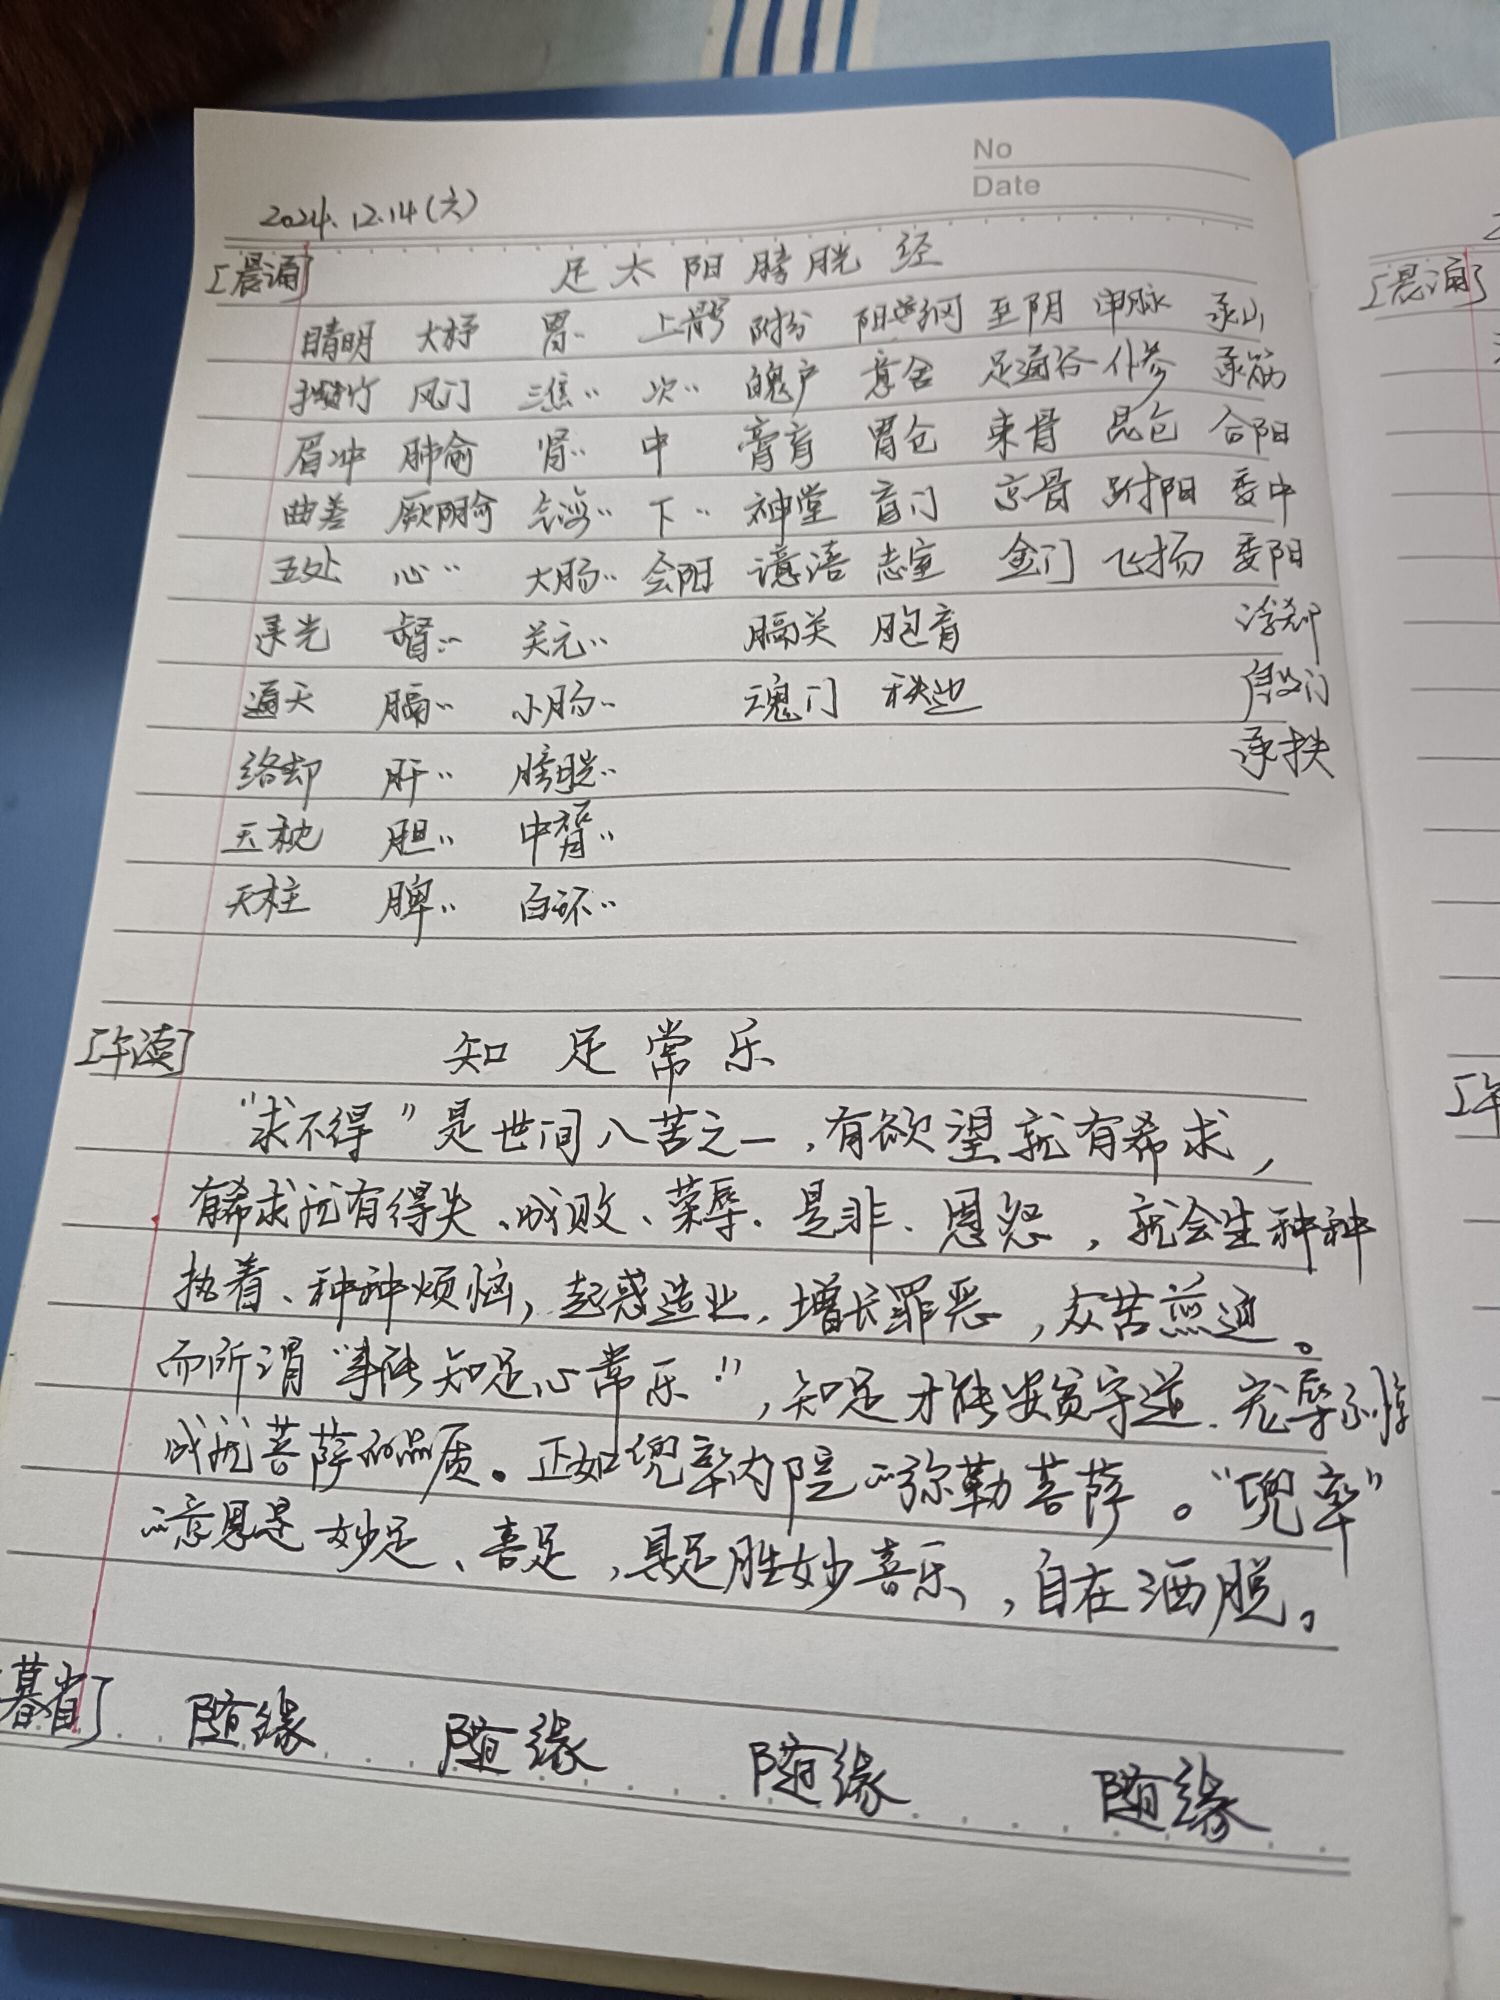 No
Date
2024.12.14(六)
[晨诵] 足太阳膀胱经
睛明 大杼 胃〃 上髎 附分 阳纲 至阴 申脉 承山
攒竹 风门 三焦〃 次〃 魄户 意舍 足通谷 仆参 承筋
眉冲 肺俞 肾〃 中 膏肓 胃仓 束骨 昆仑 合阳
曲差 厥阴俞 气海〃 下〃 神堂 肓门 京骨 跗阳 委中
五处 心〃 大肠〃 会阳 譩譆 志室 金门 飞扬 委阳
承光 督〃 关元〃 膈关 胞肓 浮郄
通天 膈〃 小肠〃 魂门 秩边 殷门
络却 肝〃 膀胱〃 承扶
玉枕 胆〃 中膂〃
天柱 脾〃 白环〃
[午读] 知足常乐
“求不得”是世间八苦之一，有欲望就有希求，
有希求就有得失、成败、荣辱、是非、恩怨，就会生种种
执着、种种烦恼，起惑造业，增长罪恶，众苦煎迫。
而所谓“事能知足心常乐！”，知足才能安贫守道、宠辱不惊
成就菩萨的品质。正如兜率内院的弥勒菩萨。“兜率”
的意思是妙足、喜足，具足胜妙喜乐，自在洒脱。
[暮省] 随缘 随缘 随缘 随缘
[晨诵]
[午